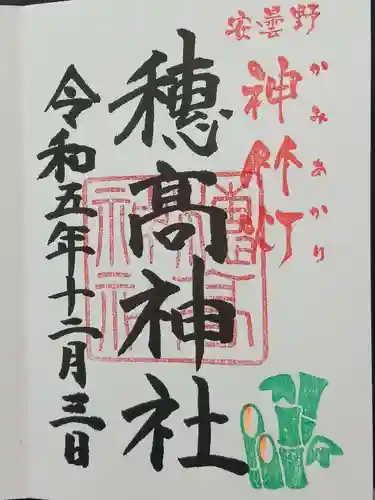 安曇野
神竹灯
かみあかり
穂高神社
令和五年十二月三日